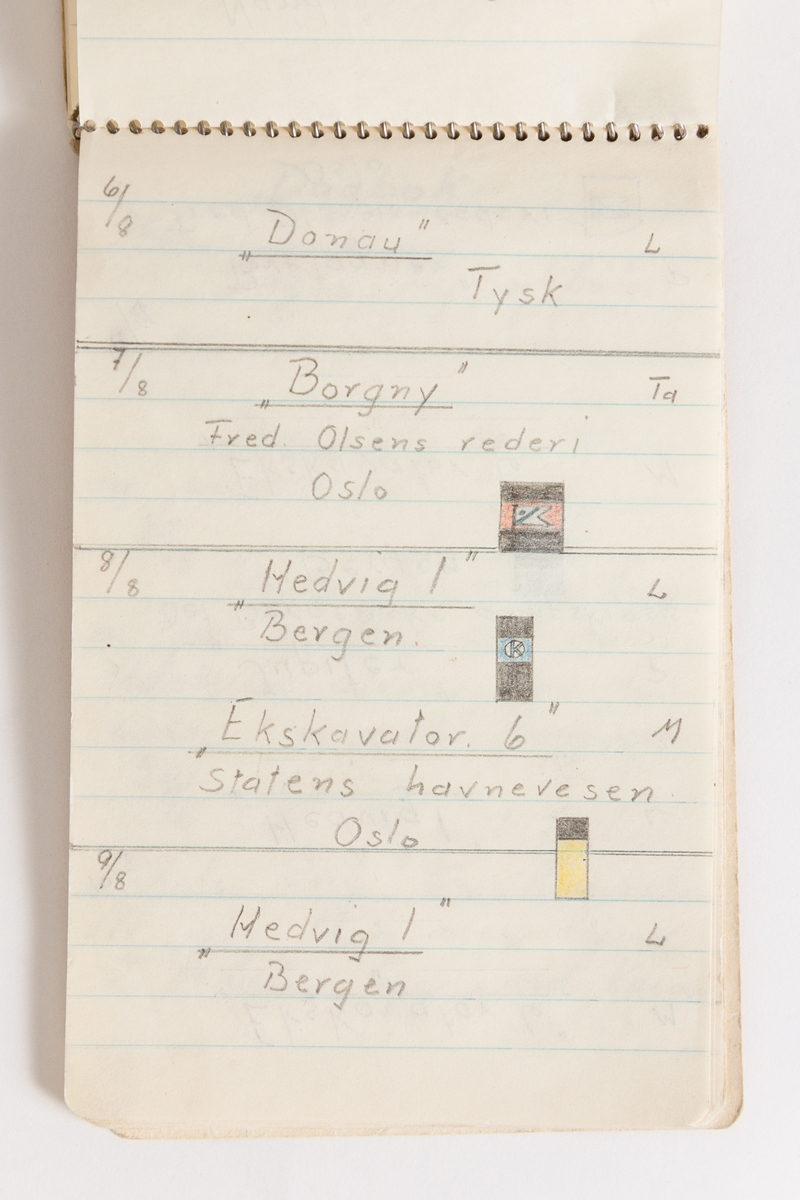 6/8
„Donau" L
Tysk
7/8
„Borgny" Ta
Fred. Olsens rederi
Oslo
8/8
„Hedvig 1" L
Bergen.
K
„Ekskavator. 6" M
Statens havnevesen.
Oslo
9/8
„Hedvig 1" L
Bergen